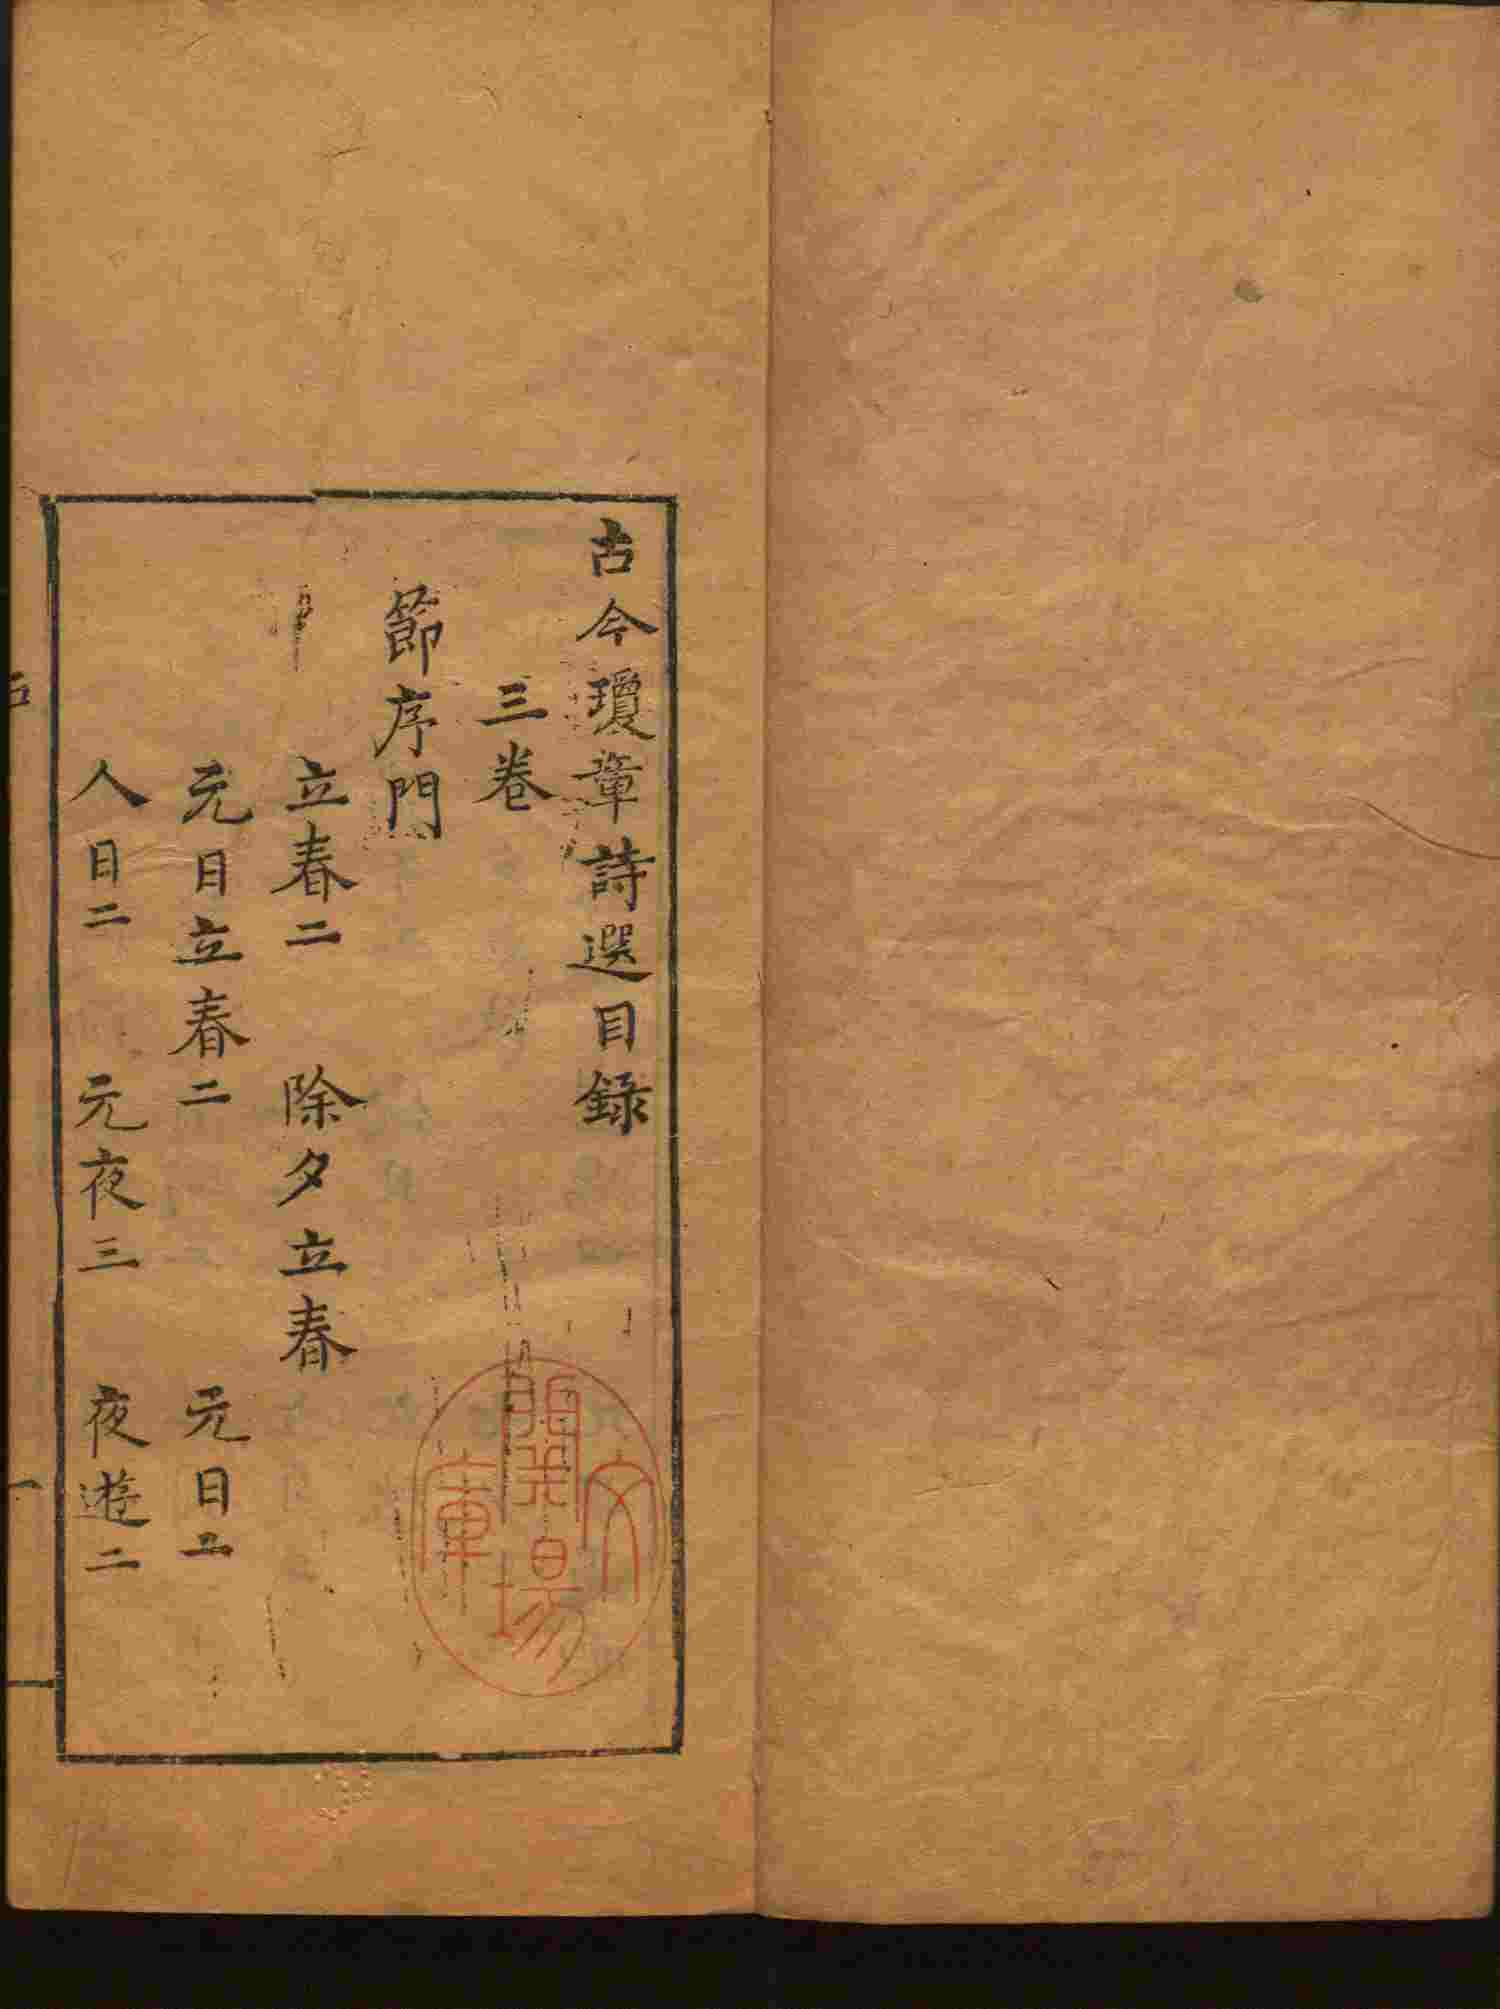 古今瓊章詩選目錄
三卷
節序門
立春二 除夕立春
元日立春二 元日二
人日二 元夜三 夜遊二
文
開易場
庫